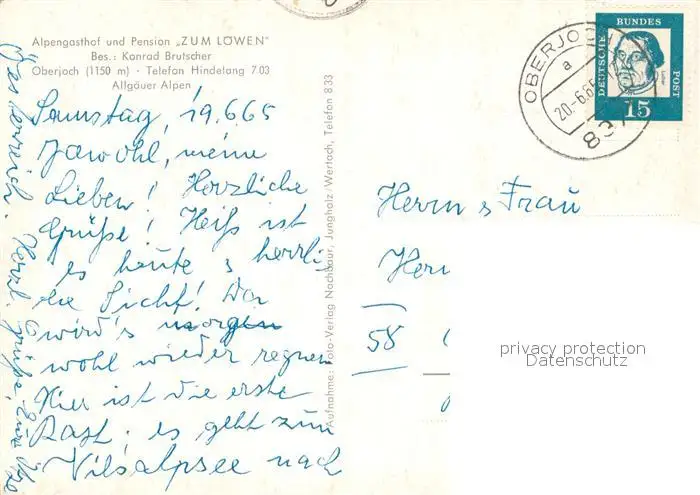 Alpengasthof und Pension „ZUM LÖWEN"
Bes.: Konrad Brutscher
Oberjoch (1150 m) · Telefon Hindelang 7 03
Allgäuer Alpen
Samstag, 19.6.65
Jawohl, meine
Lieben! Herzliche
Grüße! Heiß ist
es heute & herrli-
che Sicht! Da
wird's morgen
wohl wieder regnen
Hier ist die erste
Rast; es geht zum
Vilsalpsee nach
Österreich. Herzl. Grüße, Eure
Aufnahme: Foto-Verlag Nachbaur, Jungholz/Wertach, Telefon 8 33
OBERJOCH
a
20.-6.65
DEUTSCHE BUNDES POST
15
Herrn & Frau
58
privacy protection
Datenschutz